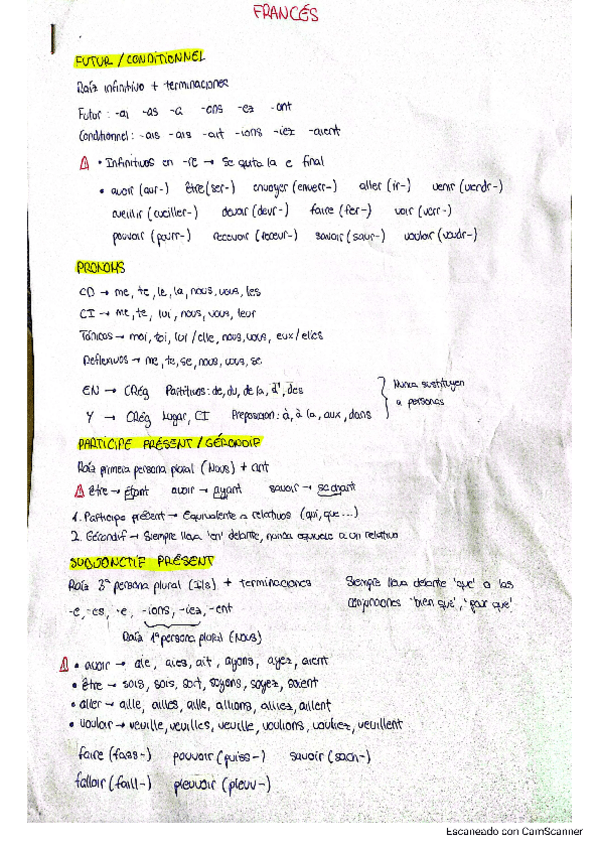 FRANCÉS
FUTUR / CONDITIONNEL
Raíz infinitivo + terminaciones
Futur : -ai -as -a -ons -ez -ont
Conditionnel : -ais -ais -ait -ions -iez -aient
• Infinitivos en -re → se quita la e final
• avoir (aur-) être (ser-) envoyer (enverr-) aller (ir-) venir (viendr-)
cueillir (cueiller-) devoir (devr-) faire (fer-) voir (verr-)
pouvoir (pourr-) recevoir (recevr-) savoir (saur-) vouloir (voudr-)
PRONOMS
CD → me, te, le, la, nous, vous, les
CI → me, te, lui, nous, vous, leur
Tónicos → moi, toi, lui / elle, nous, vous, eux / elles
Reflexivos → me, te, se, nous, vous, se
EN → CRég Partitivos: de, du, de la, d', des
Y → CRég Lugar, CI Preposición: à, à la, aux, dans
Nunca sustituyen
a personas
PARTICIPE PRÉSENT / GÉRONDIF
Raíz primera persona plural (Nous) + ant
être → étant avoir → ayant savoir → sachant
1. Participe présent → Equivalente a relativos (qui, que...)
2. Gérondif → Siempre lleva 'en' delante, nunca equivale a un relativo
SUBJONCTIF PRÉSENT
Raíz 3ª persona plural (Ils) + terminaciones
-e, -es, -e, -ions, -iez, -ent
Raíz 1ª persona plural (Nous)
Siempre lleva delante 'que' o las
conjunciones 'bien que', 'pour que'
• avoir → aie, aies, ait, ayons, ayez, aient
• être → sois, sois, soit, soyons, soyez, soient
• aller → aille, ailles, aille, allions, alliez, aillent
• vouloir → veuille, veuilles, veuille, voulions, vouliez, veuillent
faire (fass-) pouvoir (puiss-) savoir (sach-)
falloir (faill-) pleuvoir (pleuv-)
Escaneado con CamScanner